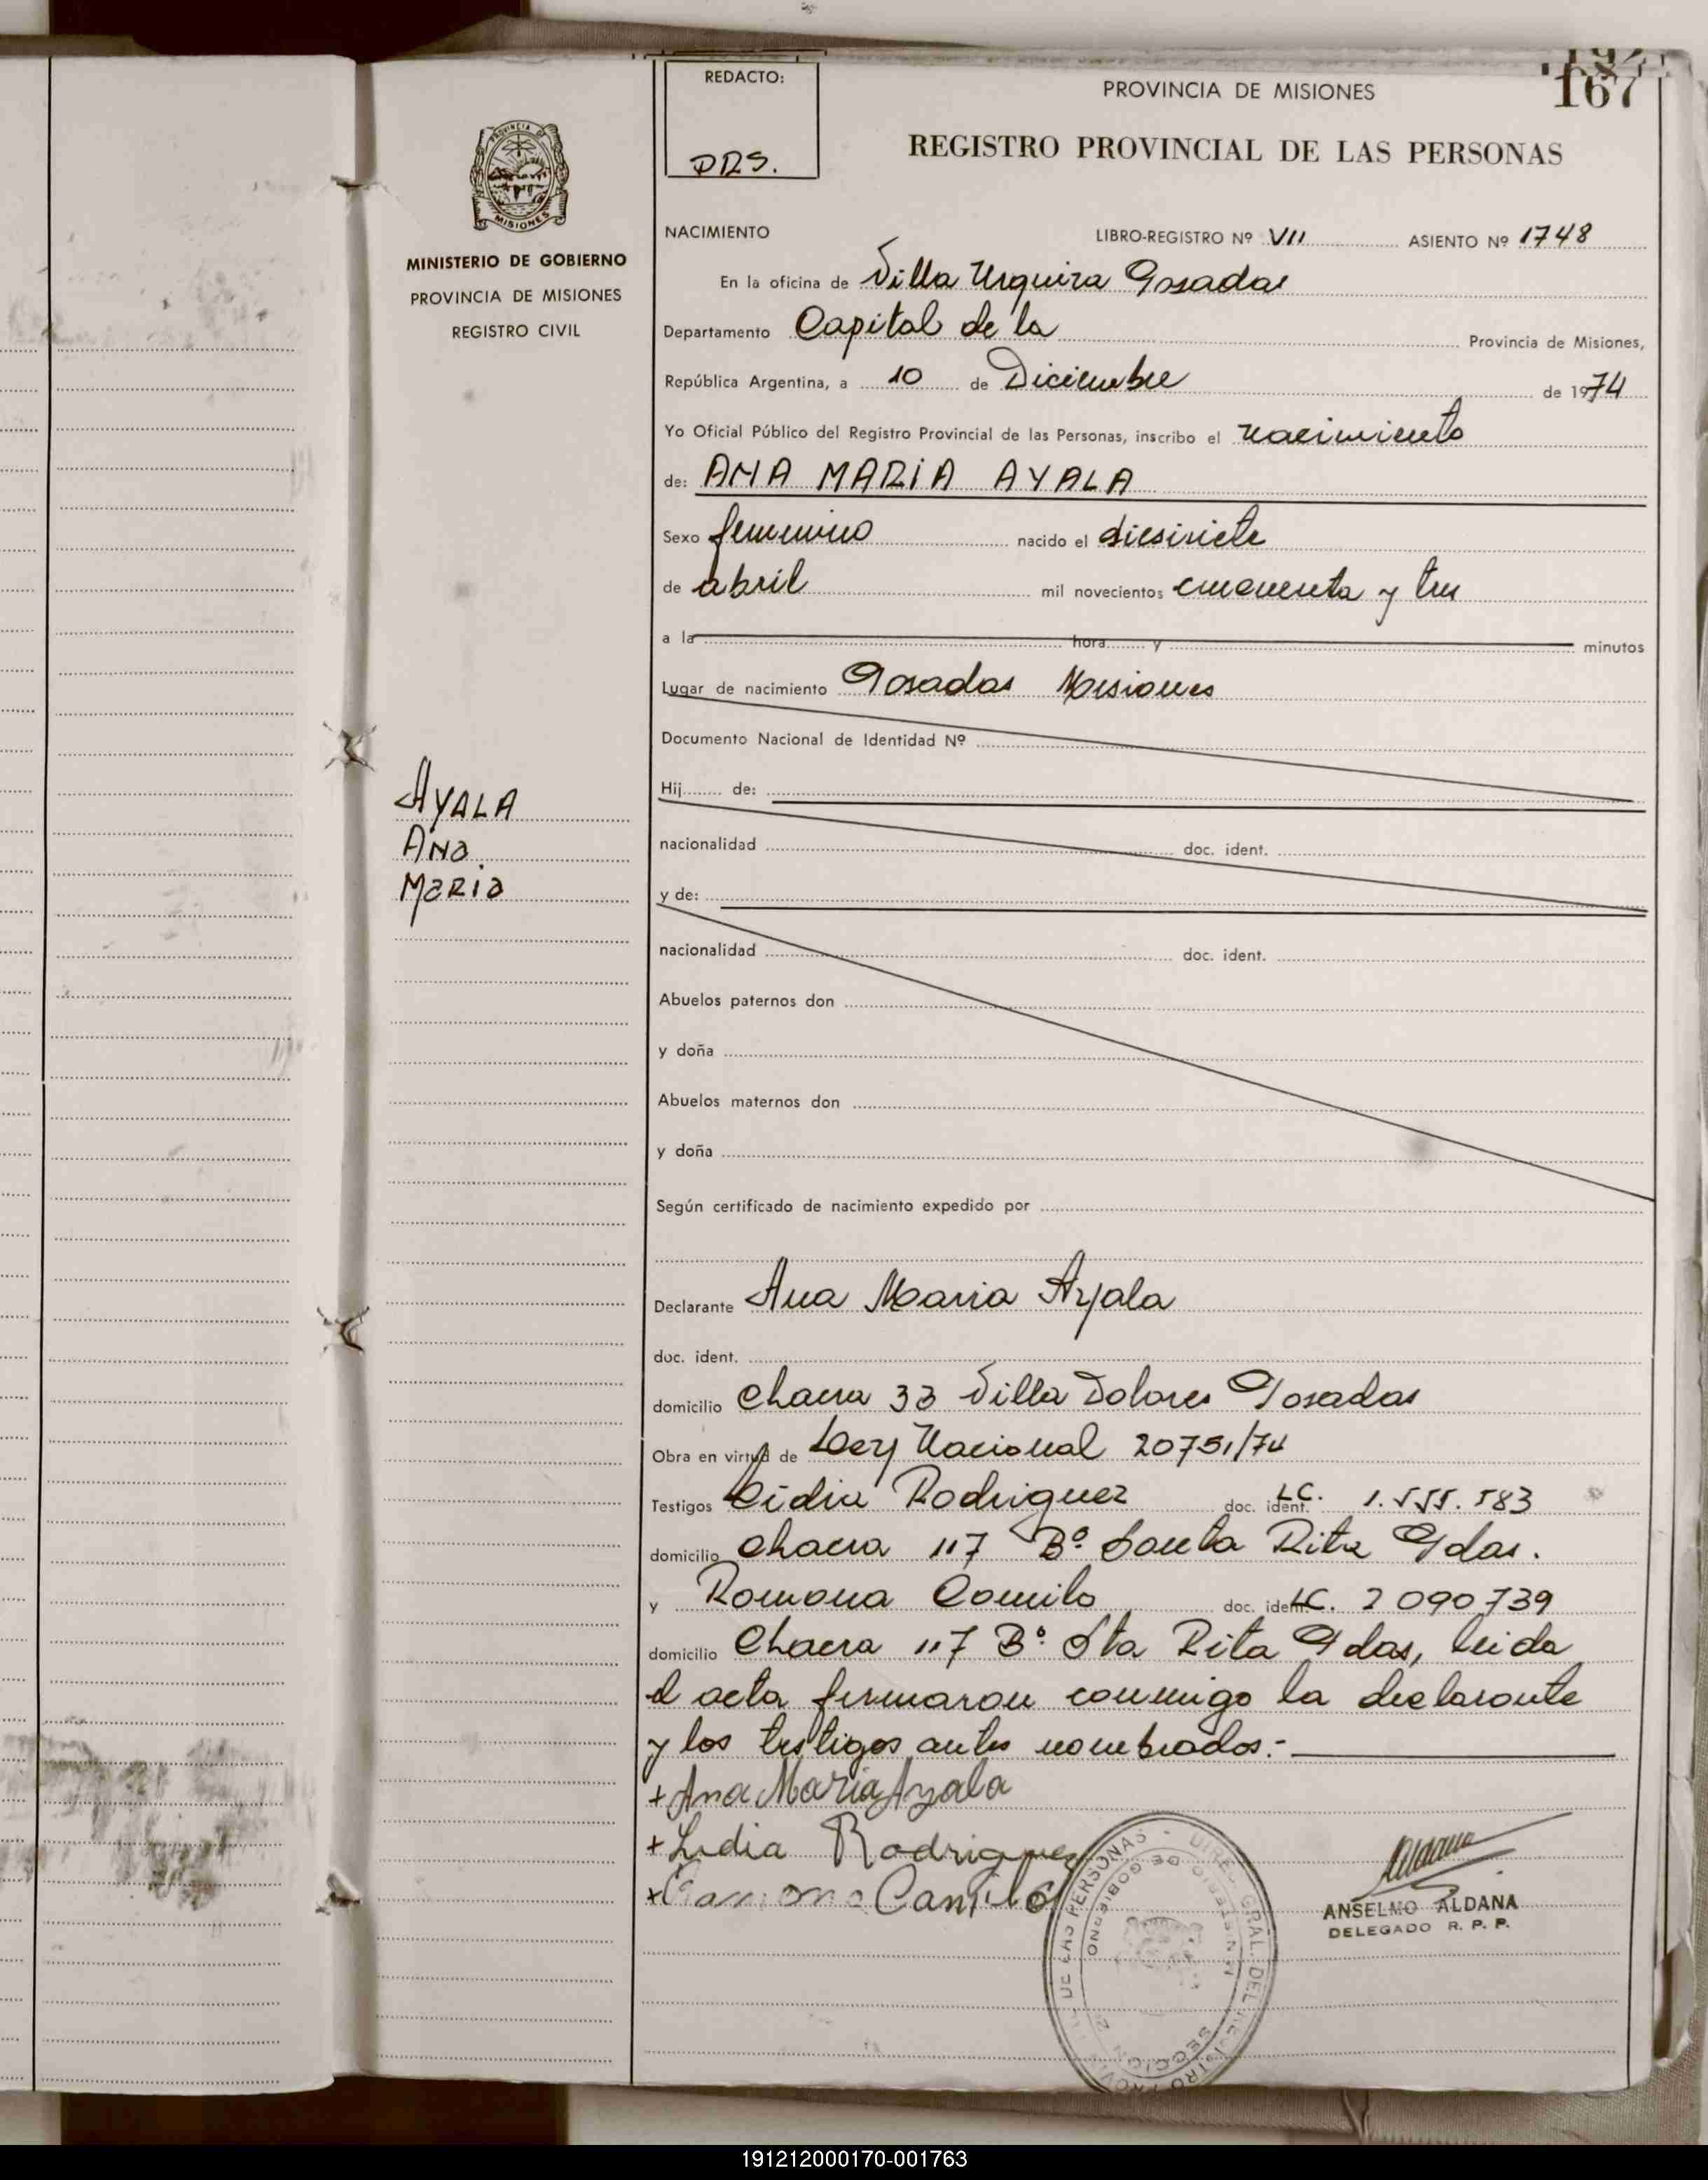 REDACTO:
DRS.
PROVINCIA DE MISIONES
167
REGISTRO PROVINCIAL DE LAS PERSONAS
PROVINCIA DE
MISIONES
MINISTERIO DE GOBIERNO
PROVINCIA DE MISIONES
REGISTRO CIVIL
NACIMIENTO LIBRO-REGISTRO Nº VII ASIENTO Nº 1748
En la oficina de Villa Urquiza Posadas
Departamento Capital de la Provincia de Misiones,
República Argentina, a 10 de Diciembre de 1974
Yo Oficial Público del Registro Provincial de las Personas, inscribo el nacimiento
de: ANA MARIA AYALA
Sexo femenino nacido el diesisiete
de abril mil novecientos cincuenta y tres
a la hora y minutos
Lugar de nacimiento Posadas Misiones
Documento Nacional de Identidad Nº
Hij de:
AYALA
Ana
Maria
nacionalidad doc. ident.
y de:
nacionalidad doc. ident.
Abuelos paternos don
y doña
Abuelos maternos don
y doña
Según certificado de nacimiento expedido por
Declarante Ana Maria Ayala
doc. ident.
domicilio Chacra 33 Villa Dolores Posadas
Obra en virtud de Ley Nacional 20751/74
Testigos Lidia Rodriguez doc. ident. LC. 1.555.583
domicilio Chacra 117 Bº Santa Rita Pdas.
y Ramona Camilo doc. ident. LC. 2 090 739
domicilio Chacra 117 Bº Sta Rita Pdas, leida
el acta firmaron conmigo la declarante
y los testigos antes nombrados.-
+ Ana Maria Ayala
+ Lidia Rodriguez
+ Ramona Camilo
ANSELMO ALDANA
DELEGADO R. P. P.
191212000170-001763